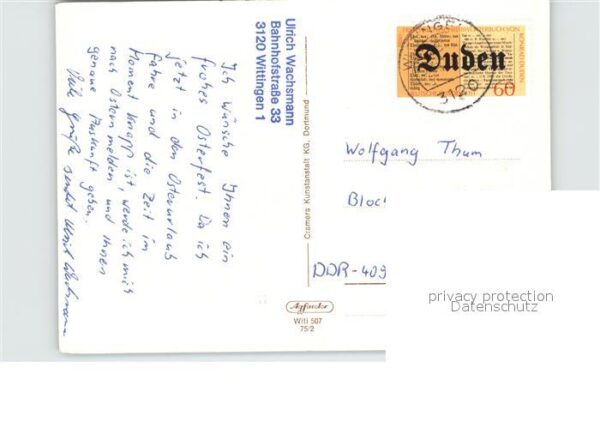 Ulrich Wachsmann
Bahnhofstraße 33
3120 Wittingen 1
Ich wünsche Ihnen ein
frohes Osterfest. Da ich
jetzt in den Osterurlaub
fahre und die Zeit im
Moment knapp ist, werde ich mich
nach Ostern melden und Ihnen
genaue Auskunft geben.
Viele Grüße sendet Ulrich Wachsmann
Cramers Kunstanstalt KG, Dortmund
Witi 507
75/2
Duden
60
3120
Wolfgang Thum
Bloc
DDR-409
privacy protection
Datenschutz